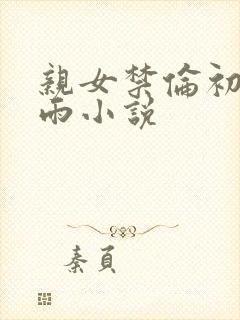 親女禁倫初
雨小説
秦頁